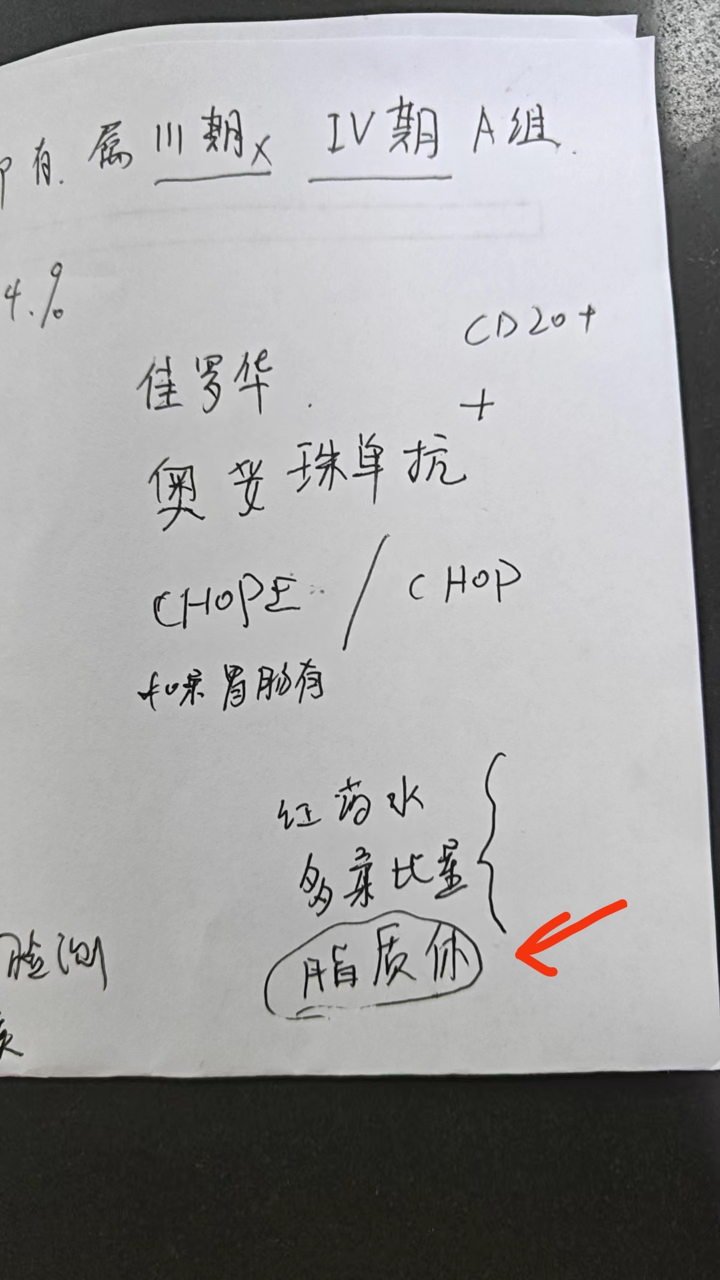 有. 属 III期x IV期 A组.
4.%
CD20+
佳罗华. +
奥妥珠单抗
CHOPE / CHOP
如果胃肠有
红药水
多柔比星
脂质体
测